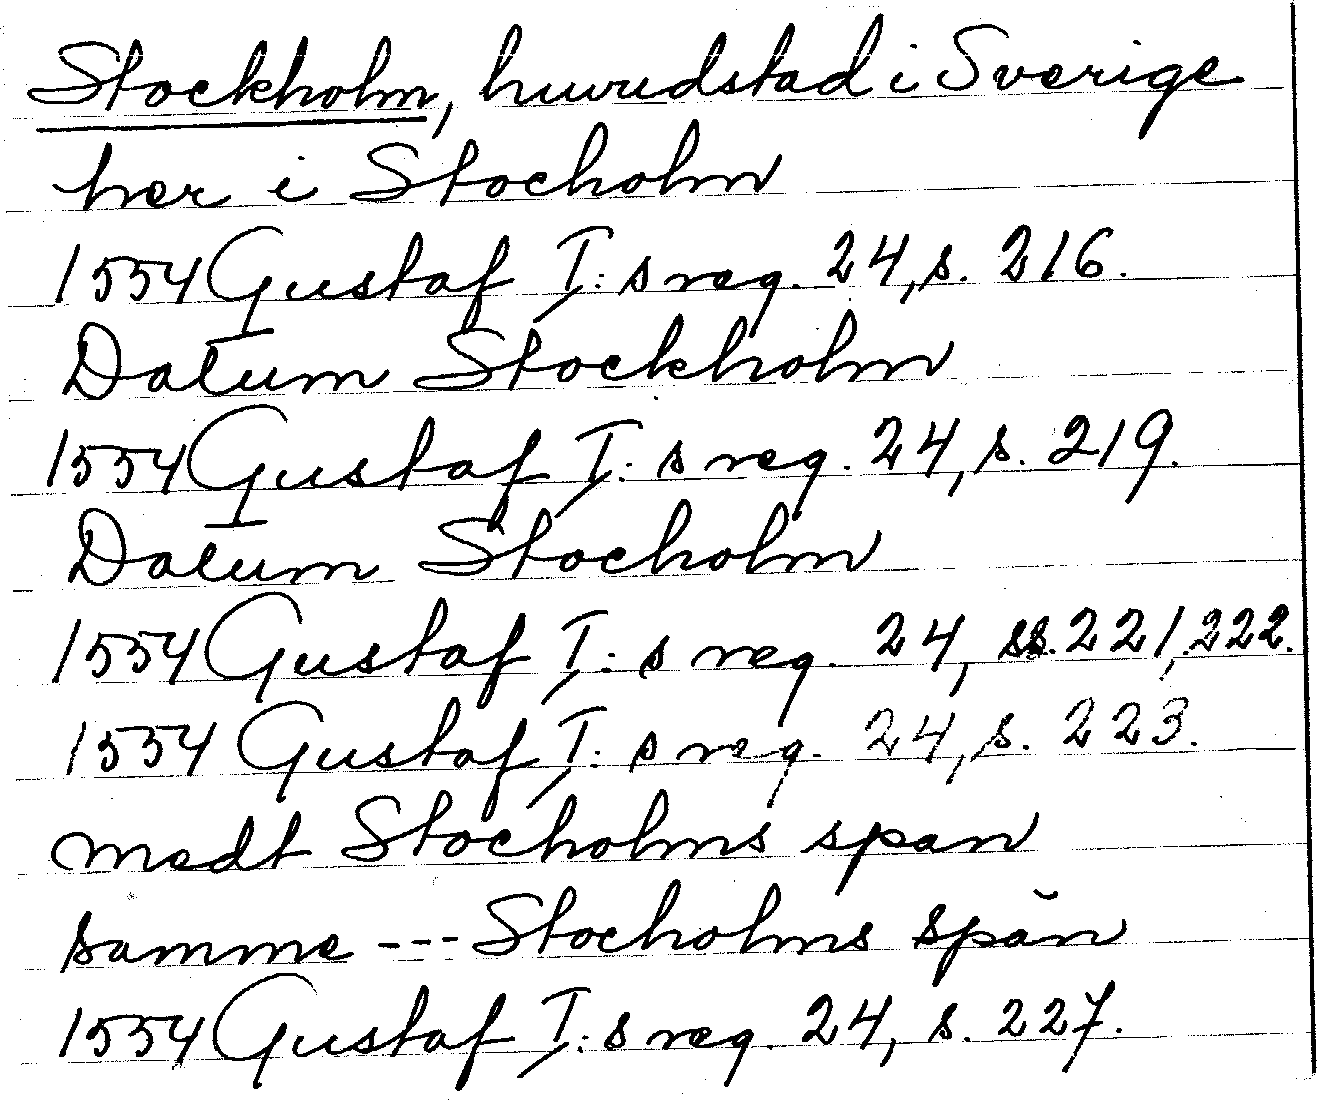 Stockholm, huvudstad i Sverige
her i Stocholm
1554 Gustaf I:s reg. 24, s. 216.
Datum Stockholm
1554 Gustaf I:s reg. 24, s. 219.
Datum Stocholm
1554 Gustaf I:s reg. 24, ss. 221, 222.
1554 Gustaf I:s reg. 24, s. 223.
medt Stocholms span
samme --- Stocholms spăn
1554 Gustaf I:s reg. 24, s. 227.